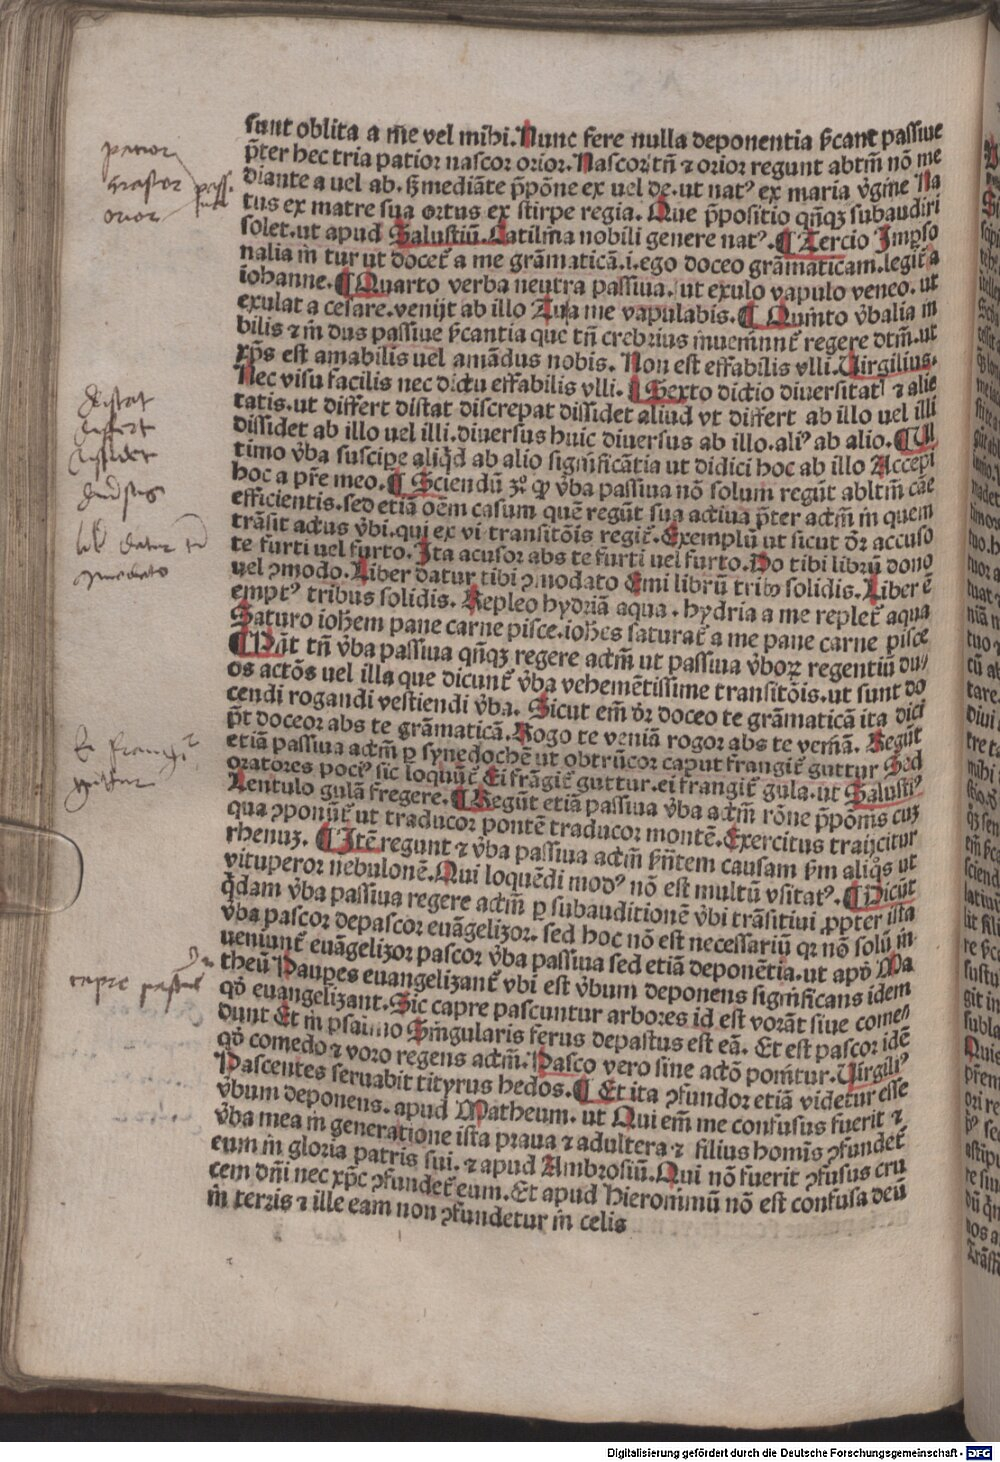 sunt oblita a me vel mihi. Nunc fere nulla deponentia ꝟcant passiue
p̄ter hec tria patior nascor orior. Nascor tñ ⁊ orior regunt abtm̄ nō me
diante a uel ab. sꝫ mediāte p̄pōne ex uel de. ut natꝰ ex maria v̄gine Na
tus ex matre sua ortus ex stirpe regia. Que p̄positio qn̄qꝫ subaudiri
solet. ut apud Salustiū. Catilina nobili genere natꝰ. ¶ Tercio Imp̱so
nalia in tur ut docet̄ a me grāmaticā .i. ego doceo grāmaticam. legit̄ a
iohanne. ¶ Quarto verba neutra passiua. ut exulo vapulo veneo. ut
exulat a cesare. venijt ab illo Tu a me vapulabis. ¶ Quinto v̄balia in
bilis ⁊ in dus passiue ꝟcantia que tñ crebrius inueniunt̄ regere dtm̄. ut
xp̄s est amabilis uel amādus nobis. Non est effabilis vlli. Uirgilius.
Nec visu facilis nec dictu effabilis vlli. ¶ Sexto dictio diuersitatꝭ ⁊ alie
tatis. ut differt distat discrepat dissidet aliud vt differt ab illo uel illi
dissidet ab illo uel illi. diuersus huic diuersus ab illo. aliꝰ ab alio. ¶ Ul
timo v̄ba suscipe aliqd ab alio significātia ut didici hoc ab illo Accepi
hoc a p̄re meo. ¶ Sciendū ꝙ v̄ba passiua nō solum regūt abltm̄ cāe
efficientis. sed etiā oēm casum quē regūt sua actiua p̄ter actm̄ in quem
trāsit actus v̄bi. qui ex vi transitōis regit̄. Exemplū ut sicut dr̄ accuso
te furti uel furto. Ita acusor abs te furti uel furto. Do tibi librū dono
uel ꝯmodo. Liber datur tibi ꝯmodato Emi librū tribꝰ solidis. Liber ē
emptꝰ tribus solidis. Repleo hydriā aqua. hydria a me replet̄ aqua
Saturo ioh̄em pane carne pisce. ioh̄es saturat̄ a me pane carne pisce
¶ Pn̄t tñ v̄ba passiua qn̄qꝫ regere actm̄ ut passiua v̄boꝝ regentiū du
os actōs uel illa que dicunt̄ v̄ba vehemētissime transitōis. ut sunt do
cendi rogandi vestiendi v̄ba. Sicut em̄ dr̄ doceo te grāmaticā ita dici
p̄t doceor abs te grāmaticā. Rogo te veniā rogor abs te veniā. Regūt
etiā passiua actm̄ ꝑ synedochē ut obtrūcor caput frangit̄ guttur Sed
oratores pociꝰ sic loquūt̄ Ei frāgit̄ guttur. ei frangit̄ gula. ut Salustiꝰ
Lentulo gulā fregere. ¶ Regūt etiā passiua v̄ba actm̄ rōne p̄pōnis cuꝫ
qua ꝯponūt̄ ut traducor pontē traducor montē. Exercitus traijcitur
rhenuꝫ. ¶ Itē regunt ⁊ v̄ba passiua actm̄ ꝟn̄tem causam ẜm aliqͦs ut
vituperor nebulonē. Qui loquēdi modꝰ nō est multū vsitatꝰ. ¶ Dicūt
q̄dam v̄ba passiua regere actm̄ ꝑ subauditionē v̄bi trāsitiui ꝓpter ista
v̄ba pascor depascor euāgelizor. sed hoc nō est necessariū qꝛ nō solū in
ueniunt̄ euāgelizor pascor v̄ba passiua sed etiā deponētia. ut apd̄ Ma
theū Paupes euangelizant̄ vbi est v̄bum deponens significans idem
qd̄ euangelizant. Sic capre pascuntur arbores id est vorāt siue come
dunt Et in psalmo Singularis ferus depastus est eā. Et est pascor idē
qd̄ comedo ⁊ voro regens actm̄. Pasco vero sine actō ponitur. Uirgiliꝰ
Pascentes seruabit tityrus hedos. ¶ Et ita ꝯfundor etiā videtur esse
v̄bum deponens. apud Matheum. ut Qui em̄ me confusus fuerit ⁊
v̄ba mea in generatione ista praua ⁊ adultera ⁊ filius homīs ꝯfundet̄
eum in gloria patris sui. ⁊ apud Ambrosiū. Qui nō fuerit ꝯfusus cru
cem dn̄i nec xp̄c ꝯfundet̄ eum. Et apud Hieronimū nō est confusa deū
in terris ⁊ ille eam non ꝯfundetur in celis
patior
nascor pass.
orior
distat
differt
dissidet
capre
Digitalisierung gefördert durch die Deutsche Forschungsgemeinschaft - DFG